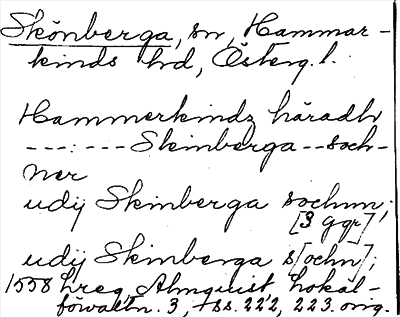 Skönberga, sn, Hammar-
kinds hd, Österg. l.
Hammerkindz häradh
---:--- Skinberga -- soch-
ner
udij Skinberga sochnn;
[3 ggr]
udij Skinberga s[ochn];
1558 hreg, Almquist, Lokal-
förvaltn. 3, ss. 222, 223. orig.